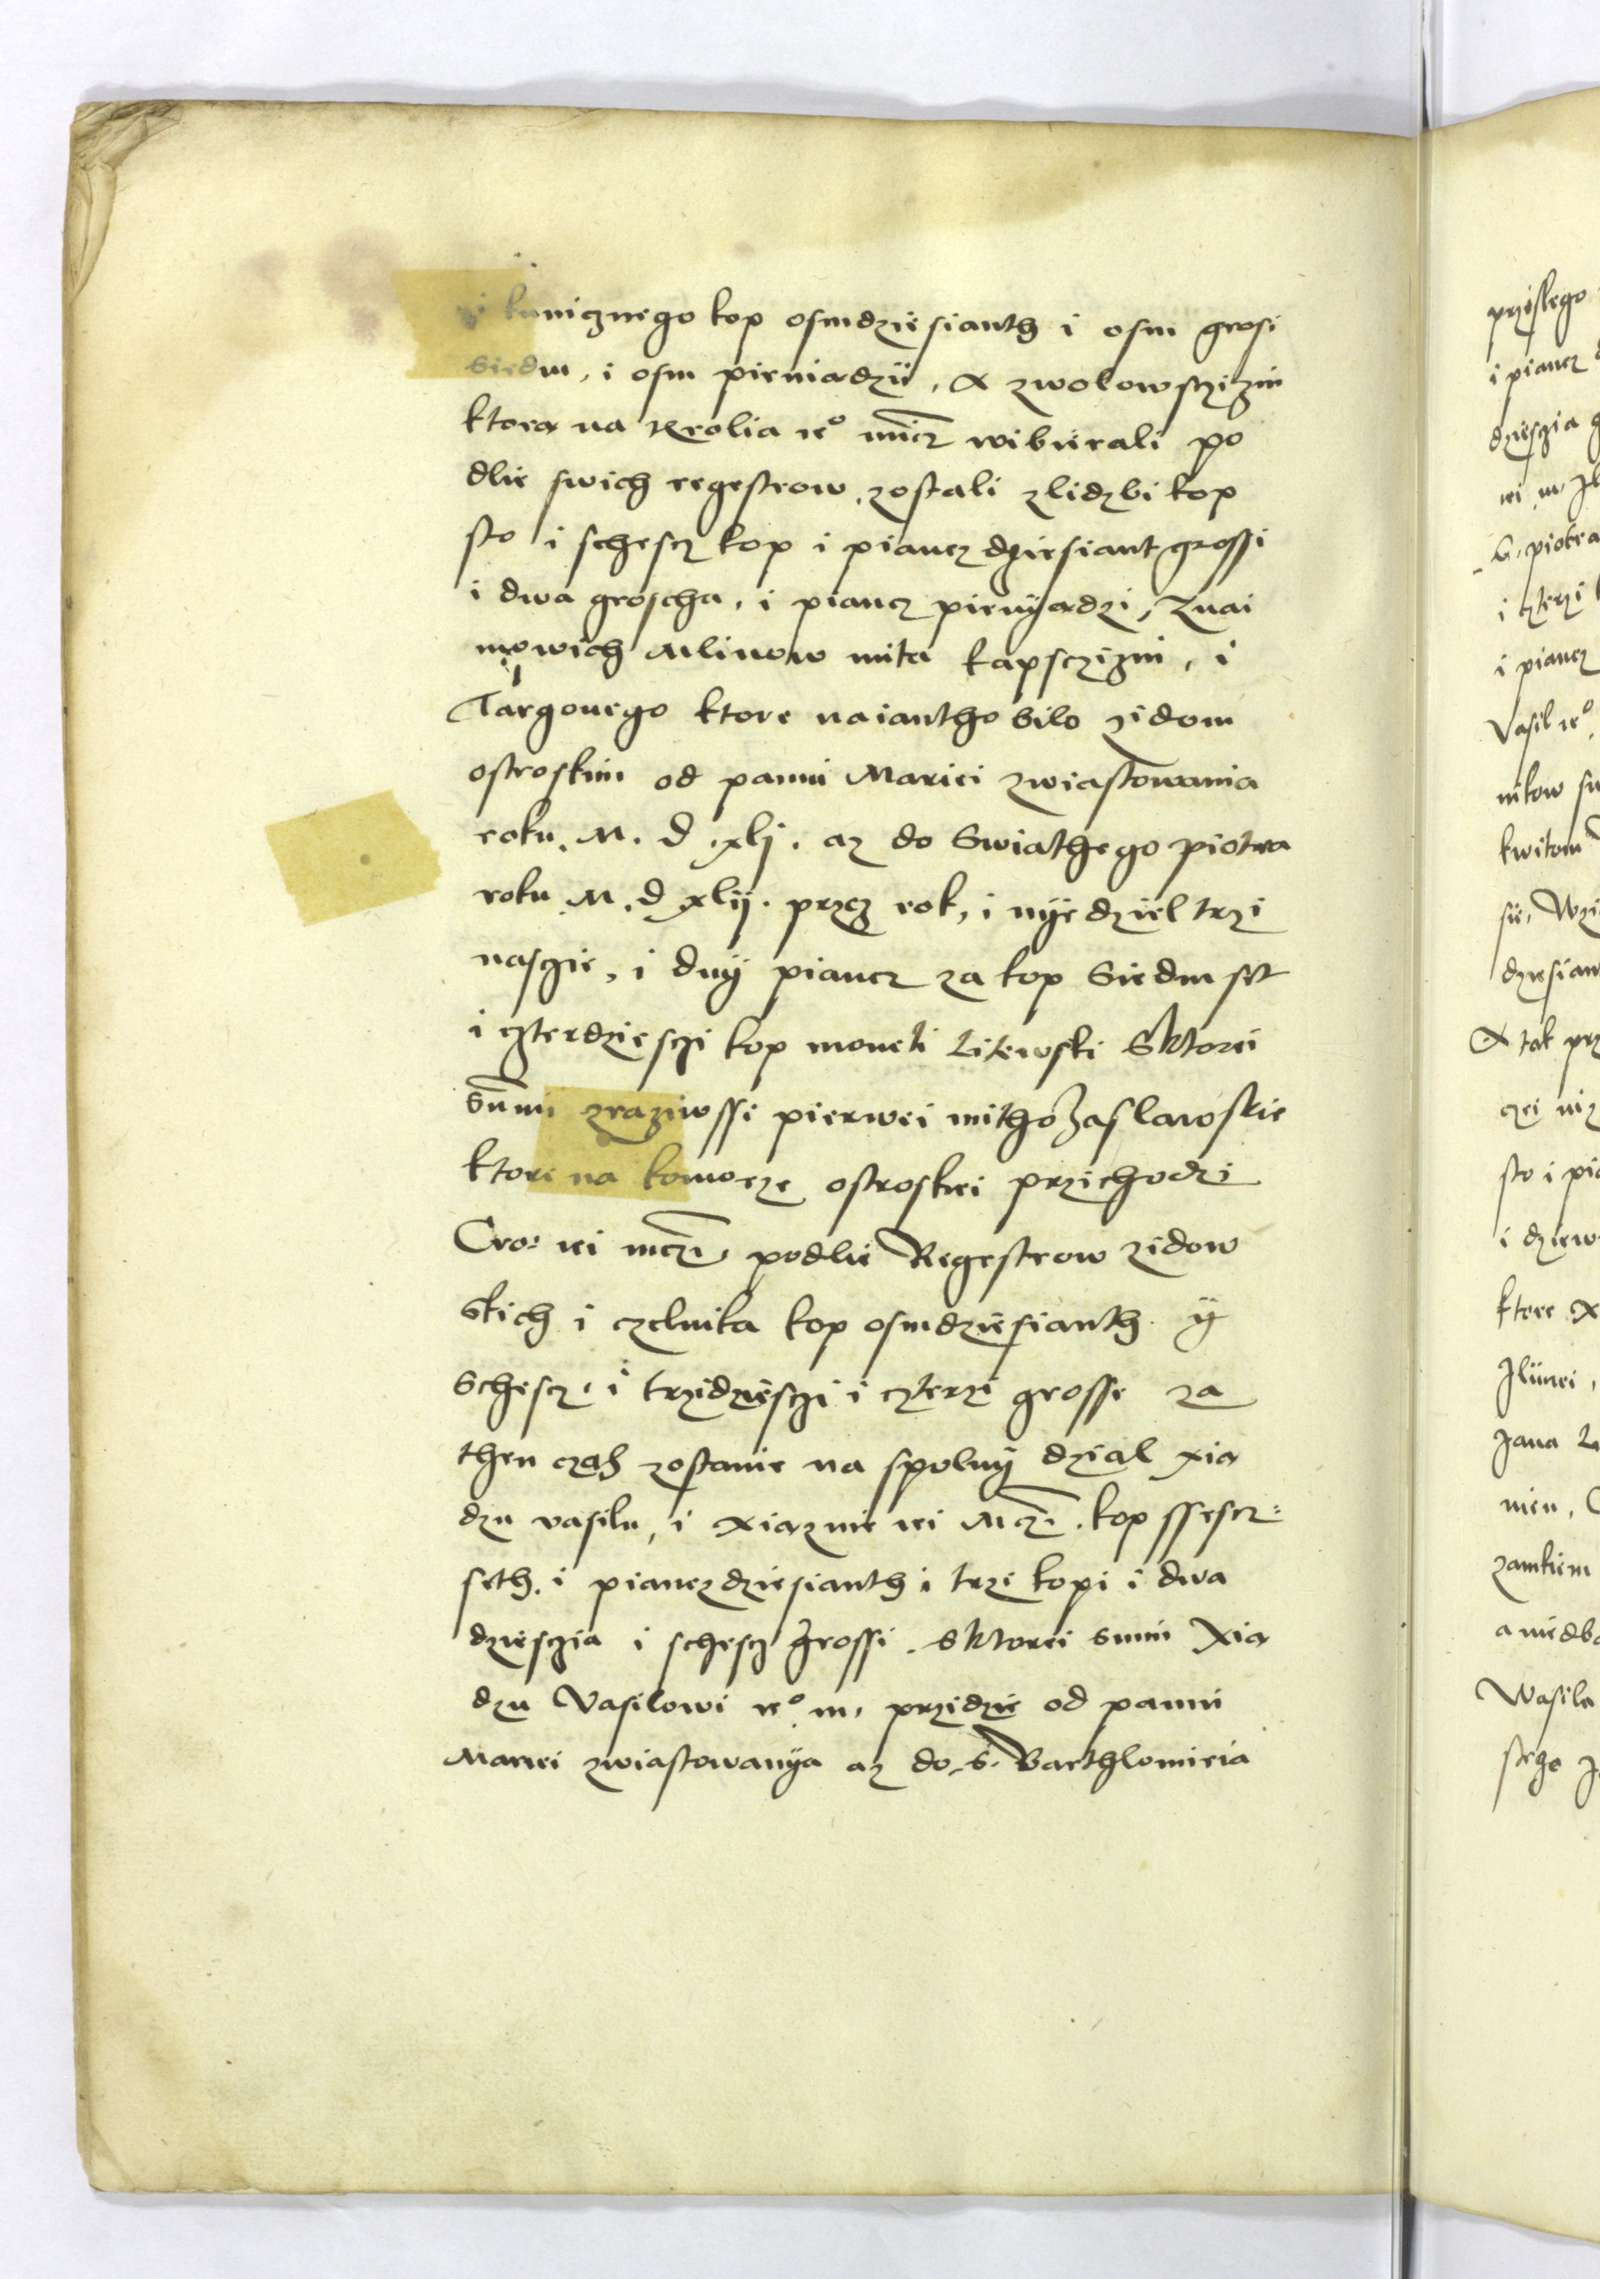 i kunicznego kop osmdziesianth i osm grosi
siedm, i osm pieniadzii, A zwolowsczizni
ktora na Krolia ie° micz wibierali po
dlie swich regestrow zostali zlidzbi kop
sto i schescz kop i pianczdziesiant grossi
i dwa groscha, i piancz pienyadzi, Znai
mowich Mlinow mita kapsczizni, i
Targouego ktore naiantho bilo zidom
ostroskim od panni Mariei zwiastowania
roku. M. d .xlj. az do Swiathego piotra
roku. M. d xlij. przez rok, i nyedziel trzi
nasczie, i dny piancz za kop Siedmset
i czterdziesczi kop moneti Litewski Sktorei
Summi zraziwssi pierwei mitho Zaslawskie
ktore na komorze ostroskei przichodzi
Cro: iei mczi, podlie Regestrow zidow
skich i czelnika kop osmdziesianth y
Schescz, i trzidziesczi i czterzi grosse za
then czas zostanie na spolny dzial xia
dzu vasilu, i xiaznie iei Mczi. kop ssescz:
seth. i pianczdziesianth i trzi kopi i dwa
dziesczia i schescz grossi. Sktorei Summi Xia
dzu Vasilowi ie° m, przidzie od panni
Mariei zwiastowanya az do S. Barthlomieia
przislego
i piancz
dziesczia
iei m,
S. piotra
i czterzi
i piancz
Vasil ie°
nikow
kwitom
sie,
dziesian
A tak prz
czei niz
sto i pia
i dziew
ktore x
Ilinei,
Jana
nien,
zamkiem
a niedb
Wasila
stego